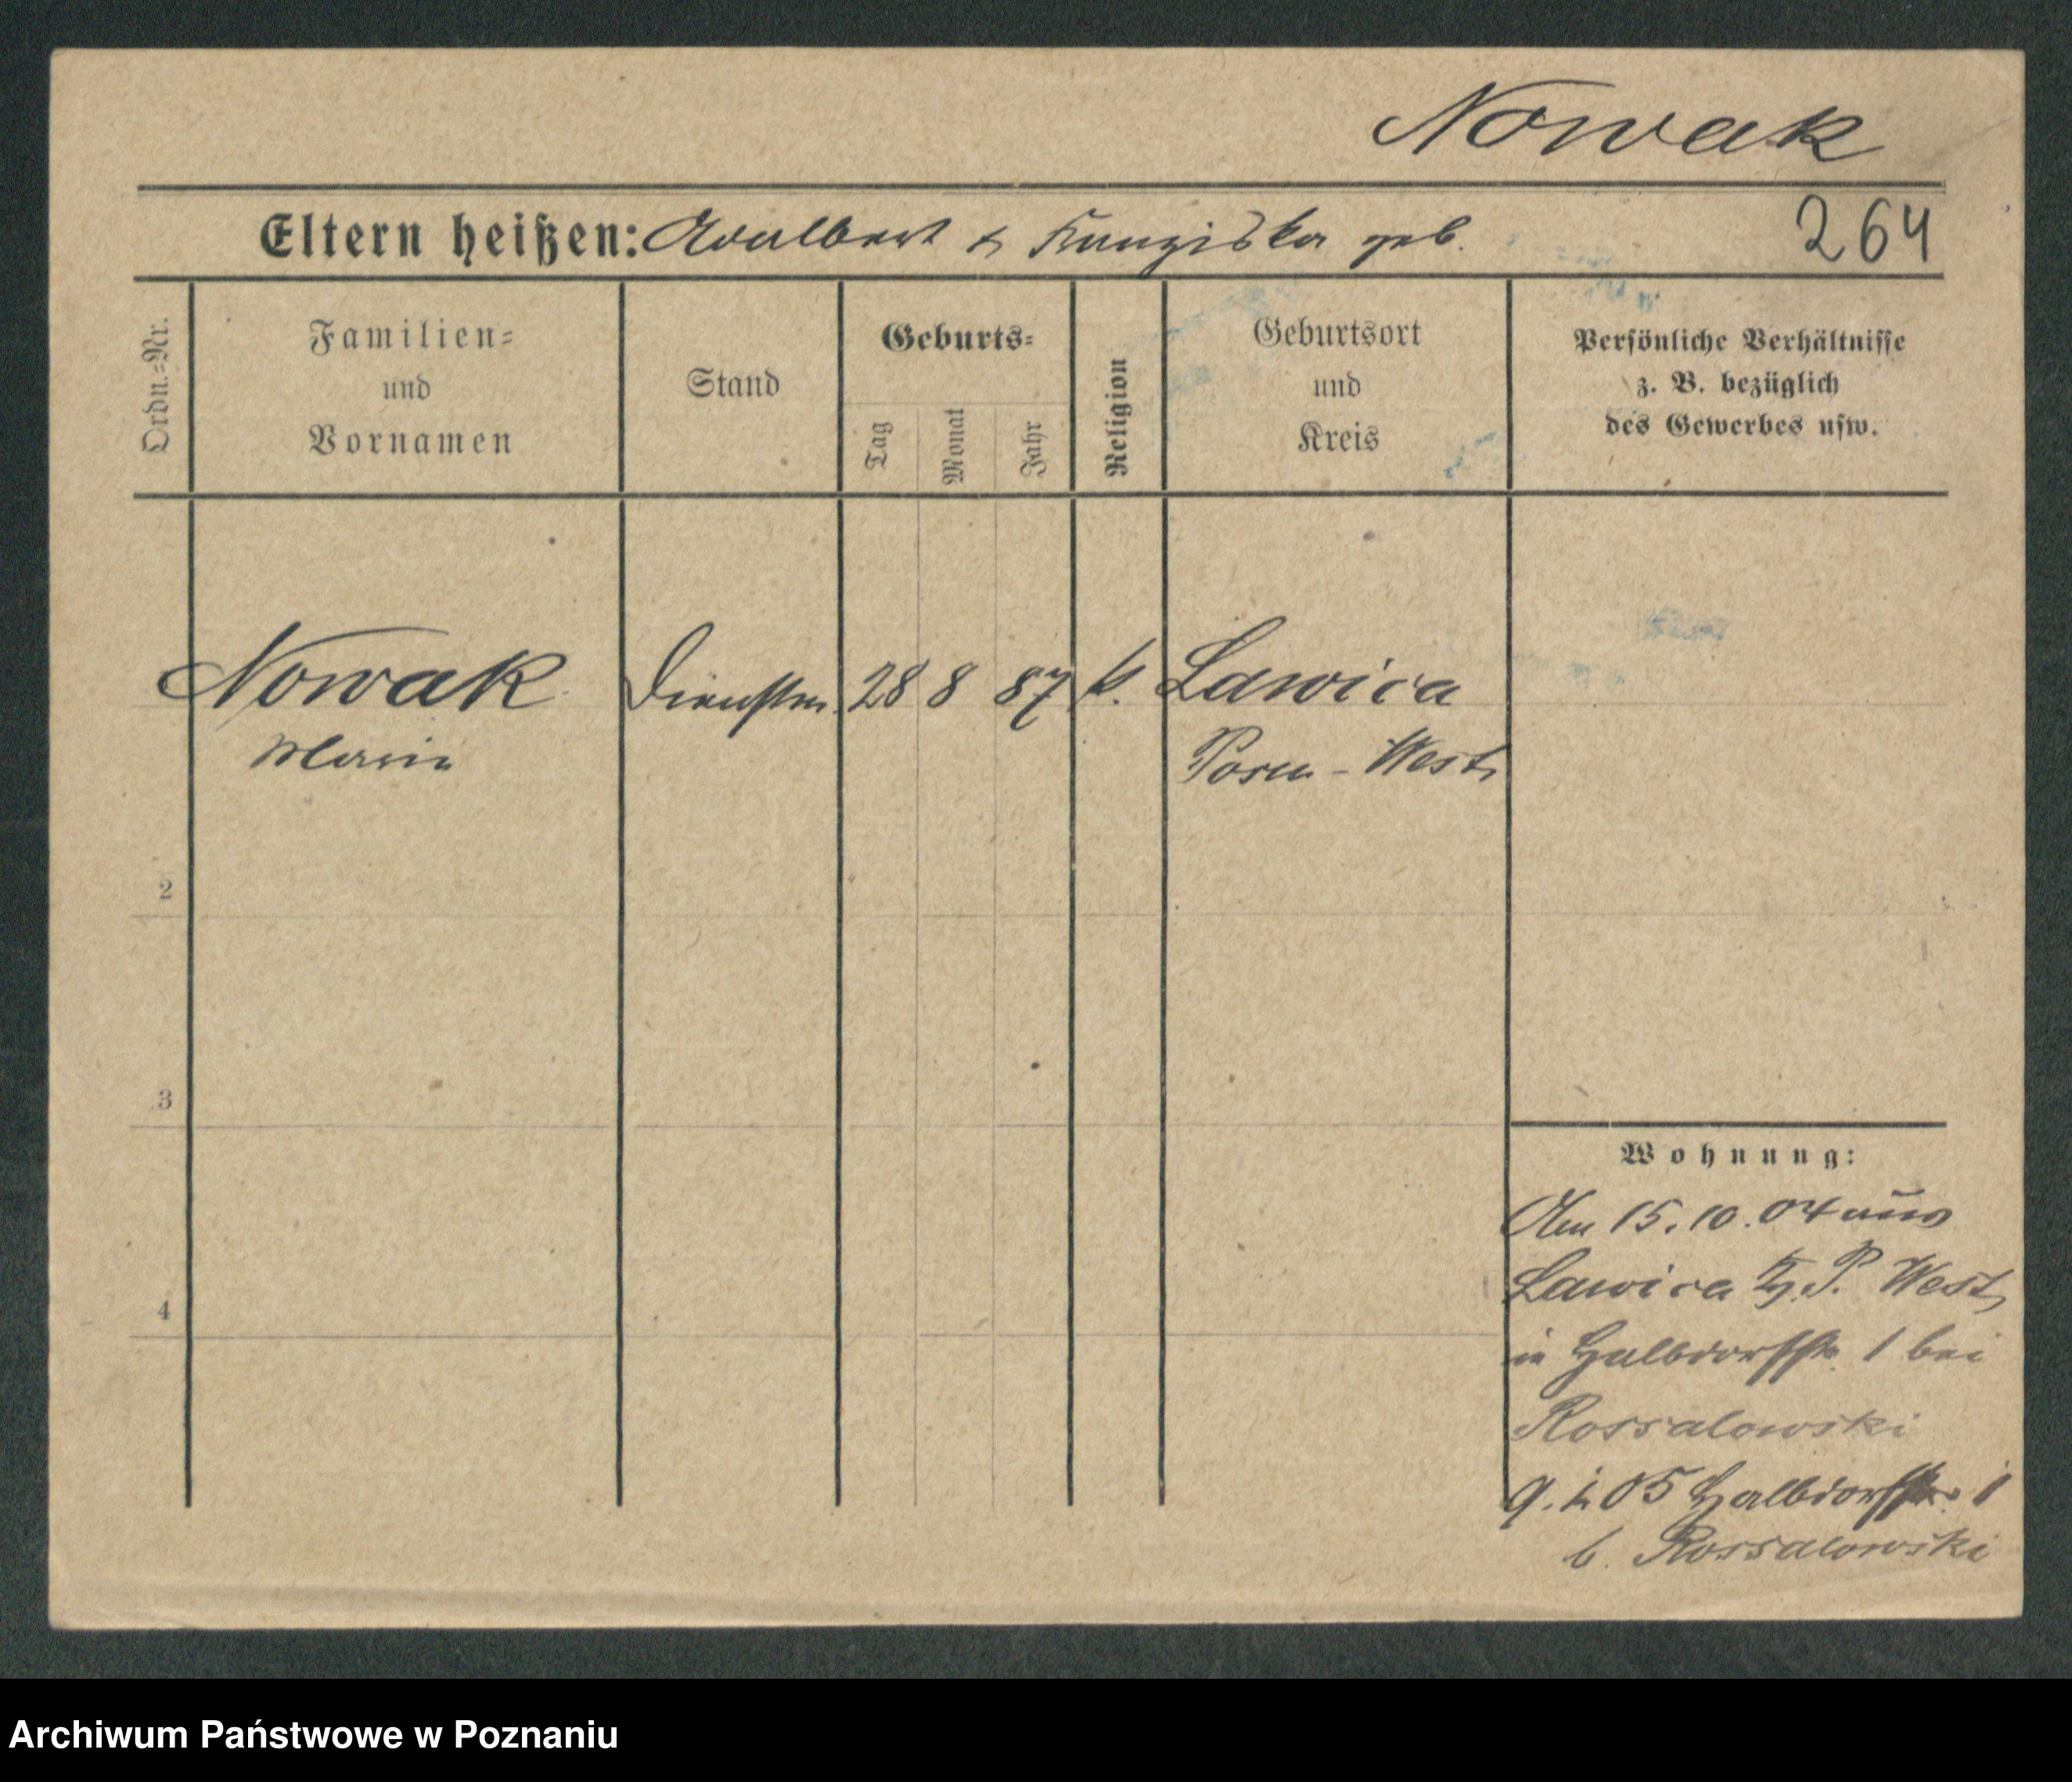 Nowak
Eltern heißen: Adalbert & Franziska geb.
264
Ordn.=Nr.
Familien=
und
Vornamen
Stand
Geburts=
Tag
Monat
Jahr
Religion
Geburtsort
und
Kreis
Persönliche Verhältnisse
z. B. bezüglich
des Gewerbes usw.
Nowak 28 8 87 k. Lawica
Marie Posen-West
2
3
4
Wohnung:
Am 15.10.04 aus
Lawica Kr. P. West
in Halbdorfstr. 1 bei
Rossalowski
05 Halbdorfstr. 1
b. Rossalowski
Archiwum Państwowe w Poznaniu